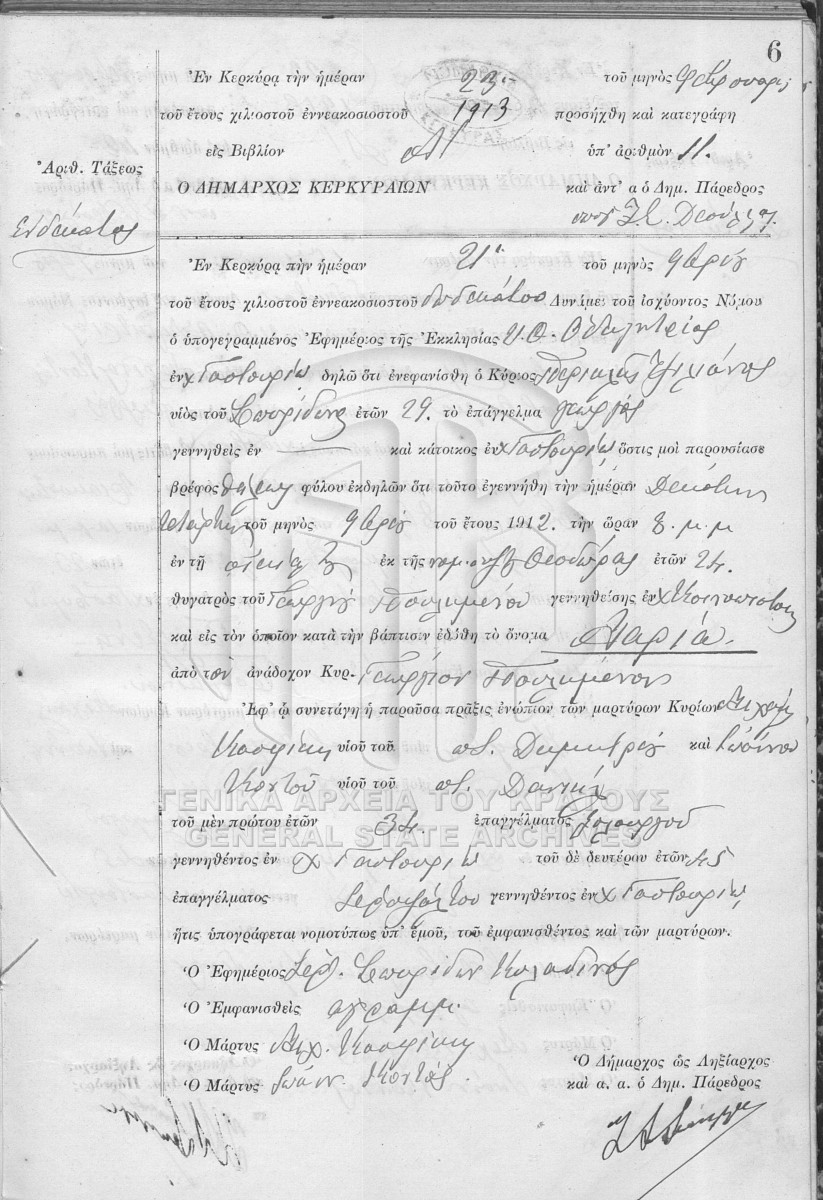 6
Ἐν Κερκύρᾳ τὴν ἡμέραν 23 τοῦ μηνὸς
τοῦ ἔτους χιλιοστοῦ ἐννεακοσιοστοῦ 1913 προσήχθη καὶ κατεγράφη
εἰς Βιβλίον Α ὑπ' ἀριθμὸν 11.
Ἀριθ. Τάξεως
Ὁ ΔΗΜΑΡΧΟΣ ΚΕΡΚΥΡΑΙΩΝ καὶ ἀντ' α ὁ Δημ. Πάρεδρος
Ἑνδέκατος
Ἐν Κερκύρᾳ πὴν ἡμέραν 21 τοῦ μηνὸς
τοῦ ἔτους χιλιοστοῦ ἐννεακοσιοστοῦ δωδεκάτου Δυνάμει τοῦ ἰσχύοντος Νόμου
ὁ ὑπογεγραμμένος Ἐφημέριος τῆς Ἐκκλησίας Υ. Θ. Ὁδηγητρίας
ἐν χ Γαστουρίῳ δηλῶ ὅτι ἐνεφανίσθη ὁ Κύριος Περικλῆς
υἱὸς τοῦ Σπυρίδωνος ἐτῶν 29. τὸ ἐπάγγελμα γεωργὸς
γεννηθεὶς ἐν καὶ κάτοικος ἐν χ Γαστουρίῳ ὅστις μοὶ παρουσίασε
βρέφος θήλεος φύλου ἐκδηλῶν ὅτι τοῦτο ἐγεννήθη τὴν ἡμέραν Δεκάτην
τετάρτην τοῦ μηνὸς τοῦ ἔτους 1912. τὴν ὥραν 8 μ.μ
ἐν τῇ οἰκίᾳ ἐκ τῆς Θεοδώρας ἐτῶν 24.
θυγατρὸς τοῦ Γεωργίου Πουλημένου γεννηθείσης ἐν χ
καὶ εἰς τὸν ὁποῖον κατὰ τὴν βάπτισιν ἐδόθη τὸ ὄνομα Μαρία.
ἀπὸ τὸν ἀνάδοχον Κυρ. Γεώργιον Πουλημένον
Ἐφ' ᾧ συνετάγη ἡ παροῦσα πρᾶξις ἐνώπιον τῶν μαρτύρων Κυρίων
υἱοῦ τοῦ Δημητρίου καὶ Ἰωάννου
Κοντοῦ υἱοῦ τοῦ Δανιὴλ
τοῦ μὲν πρώτου ἐτῶν 34. ἐπαγγέλματος ξυλουργοῦ
γεννηθέντος ἐν χ Γαστουρίῳ τοῦ δὲ δευτέρου ἐτῶν 45
ἐπαγγέλματος γεννηθέντος ἐν χ Γαστουρίῳ
ἥτις ὑπογράφεται νομοτύπως ὑπ' ἐμοῦ, τοῦ ἐμφανισθέντος καὶ τῶν μαρτύρων.
Ὁ Ἐφημέριος Ἱερ. Σπυρίδων
Ὁ Ἐμφανισθεὶς ἀγράμμ.
Ὁ Μάρτυς
Ὁ Μάρτυς Ἰωάνν. Κοντός
Ὁ Δήμαρχος ὡς Ληξίαρχος
καὶ α. α. ὁ Δημ. Πάρεδρος
ΓΕΝΙΚΑ ΑΡΧΕΙΑ ΤΟΥ ΚΡΑΤΟΥΣ
GENERAL STATE ARCHIVES